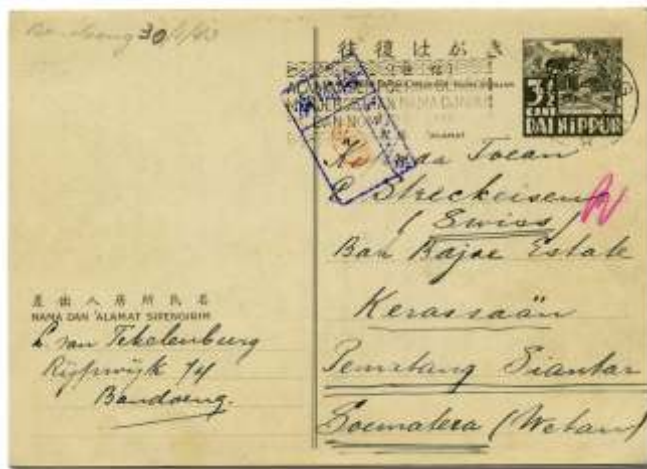 Bandoeng 30/4/43
往復はがき
3½
CENT
DAI NIPPON
ALAMAT
Kepada Toean
Streckeisen
(Swiss)
Bah Bajoe Estate
Kerassaän
Pematang Siantar
Soematera (Wetan)
差出人居所氏名
NAMA DAN 'ALAMAT SIPENGIRIM
L. van Tekelenburg
Rijswijk 74
Bandoeng.